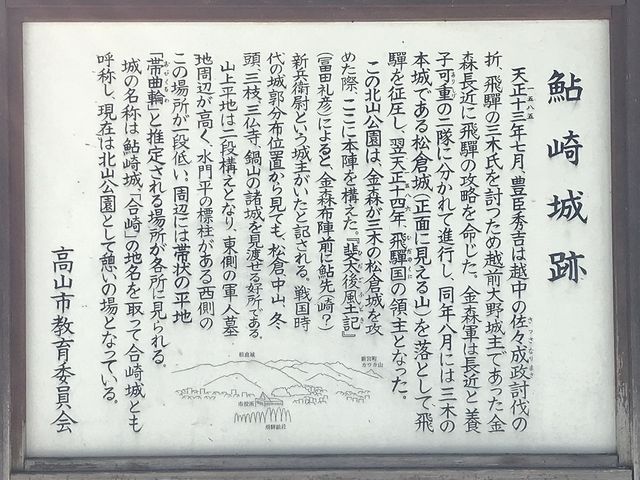 鮎崎城跡
天正十三年七月、豊臣秀吉は越中の佐々成政討伐の
折、飛騨の三木氏を討つため越前大野城主であった金
森長近に飛騨の攻略を命じた。金森軍は長近と養
子可重の二隊に分かれて進行し、同年八月には三木の
本城である松倉城(正面に見える山)を落として飛
騨を征圧し、翌天正十四年、飛騨国の領主となった。
この北山公園は、金森が三木の松倉城を攻
めた際、ここに本陣を構えた。『斐太後風土記』
(冨田礼彦)によると、金森布陣前に鮎先(崎?)
新兵衛尉という城主がいたと記される。戦国時
代の城郭分布位置から見ても、松倉、中山、冬
頭、三枝、三仏寺、鍋山の諸城を見渡せる好所である。
山上平地は二段構えとなり、東側の軍人墓
地周辺が高く、水門平の標柱がある西側の
この場所が一段低い。周辺には帯状の平地
「帯曲輪」と推定される場所が各所に見られる。
城の名称は鮎崎城、「合崎」の地名を取って合崎城とも
呼称し、現在は北山公園として憩いの場となっている。
高山市教育委員会
松倉城
市役所